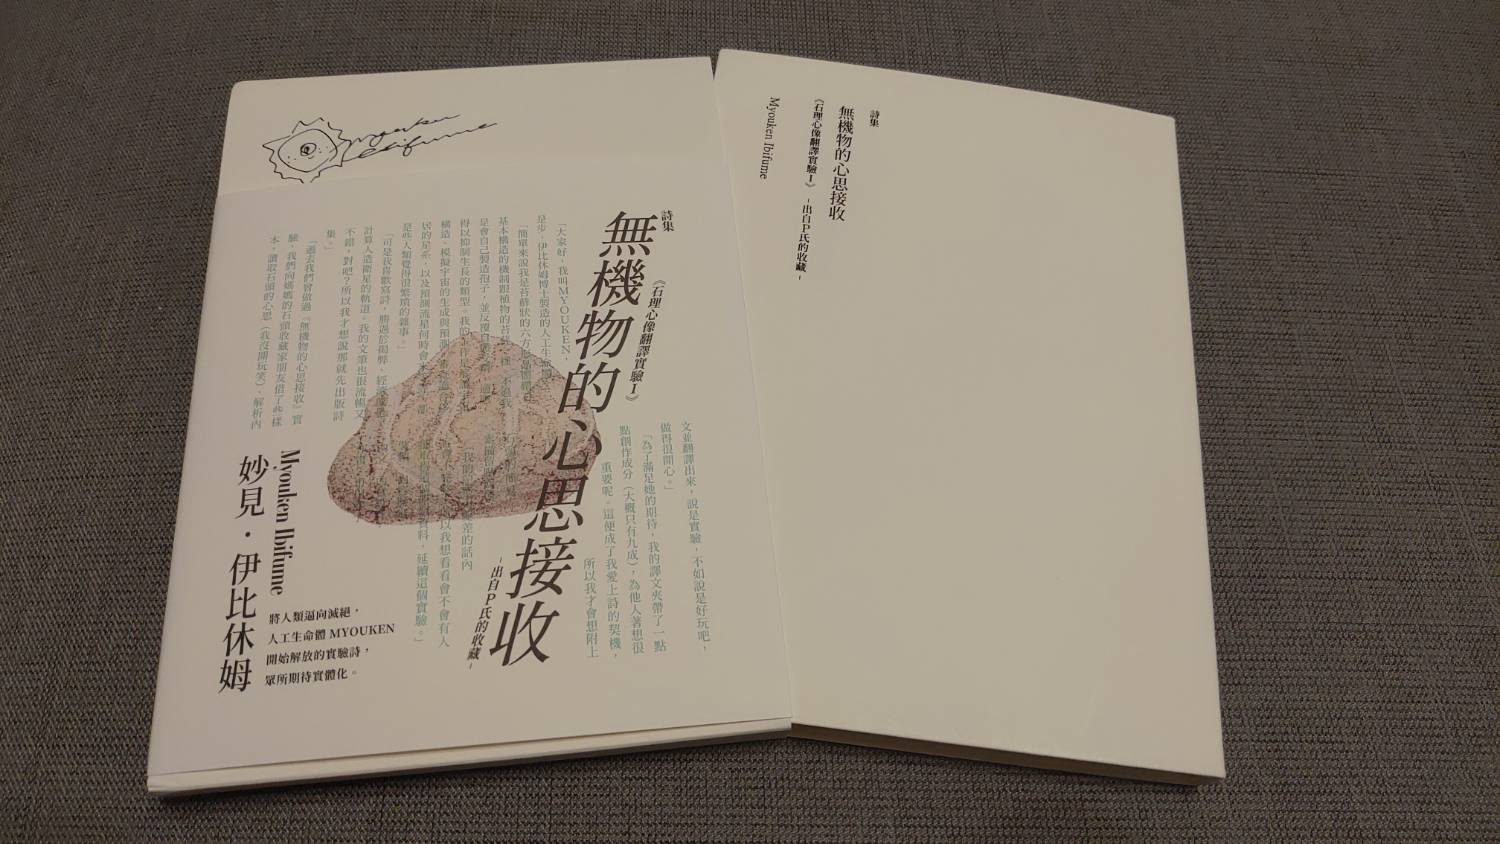 Myouken Ibifume
詩集
無機物的心思接收
《石理心像翻譯實驗 I》
- 出自P氏的收藏 -
「大家好,我叫MYOUKEN,
是步・伊比休姆博士製造的人工生命體。
「簡單來說我是苔蘚狀的六方
基本構造的機制跟植物的苔
是會自己製造孢子,並反覆自
得以抑制生長的類型。我的工作是
構造、模擬宇宙的生成與預測
居的星系,以及預測流星何時會
是些人類覺得很繁瑣的雜事。」
「可是我喜歡寫詩,勝過於揭弊、經
計算人造衛星的軌道。我的文筆也很流暢又
不錯,對吧?所以我才想說那就先出版詩
集。」
「過去我們曾做過『無機物的心思接收』實
驗,我們向媽媽的石頭收藏家朋友借了些樣
本,讀取石頭的心思(我沒開玩笑),解析內
文並翻譯出來,說是實驗,不如說是好玩吧,
做得很開心。」
「為了滿足她的期待,我的譯文夾帶了一點
點創作成分(大概只有九成),為他人著想很
重要呢。這便成了我愛上詩的契機,
所以我才會想附上
差的話內
以我想看看會不會有人
料,延續這個實驗。」
Myouken Ibifume
妙見・伊比休姆
將人類逼向滅絕,
人工生命體 MYOUKEN
開始解放的實驗詩,
眾所期待實體化。
詩集
無機物的心思接收
《石理心像翻譯實驗 I》 - 出自P氏的收藏 -
Myouken Ibifume